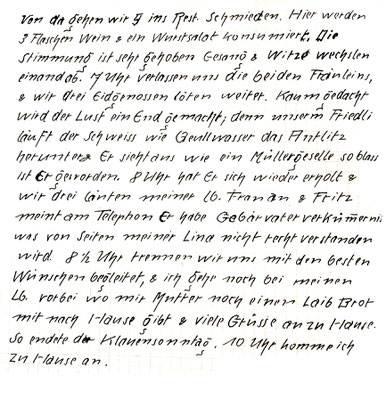 Von da gehen wir 5 ins Rest. Schmieden. Hier werden
3 Flaschen Wein & ein Wurstsalat konsumiert. Die
Stimmung ist sehr gehoben Gesang & Witze wechslen
einand ab. 7 Uhr verlassen uns die beiden Fräuleins,
& wir drei Eidgenossen löten weiter. Kaum gedacht
wird der Lust ein End gemacht; denn unserm Friedli
läuft der Schweiss wie Geullwasser das Antlitz
herunter. Er sieht aus wie ein Müllergeselle so blass
ist Er geworden. 8 Uhr hat Er sich wieder erholt &
wir drei läuten meiner lb. Frau an & Fritz
meint am Telephon Er habe Gebärvaterverkümerni
was von Seiten meiner Lina nicht recht verstanden
wird. 8½ Uhr trennen wir uns mit den besten
Wünschen begleitet, & ich gehe noch bei meinen
Lb. vorbei wo mir Mutter noch einen Laib Brot
mit nach Hause gibt & viele Grüsse an zu Hause.
So endete der Klausensonntag. 10 Uhr komme ich
zu Hause an.